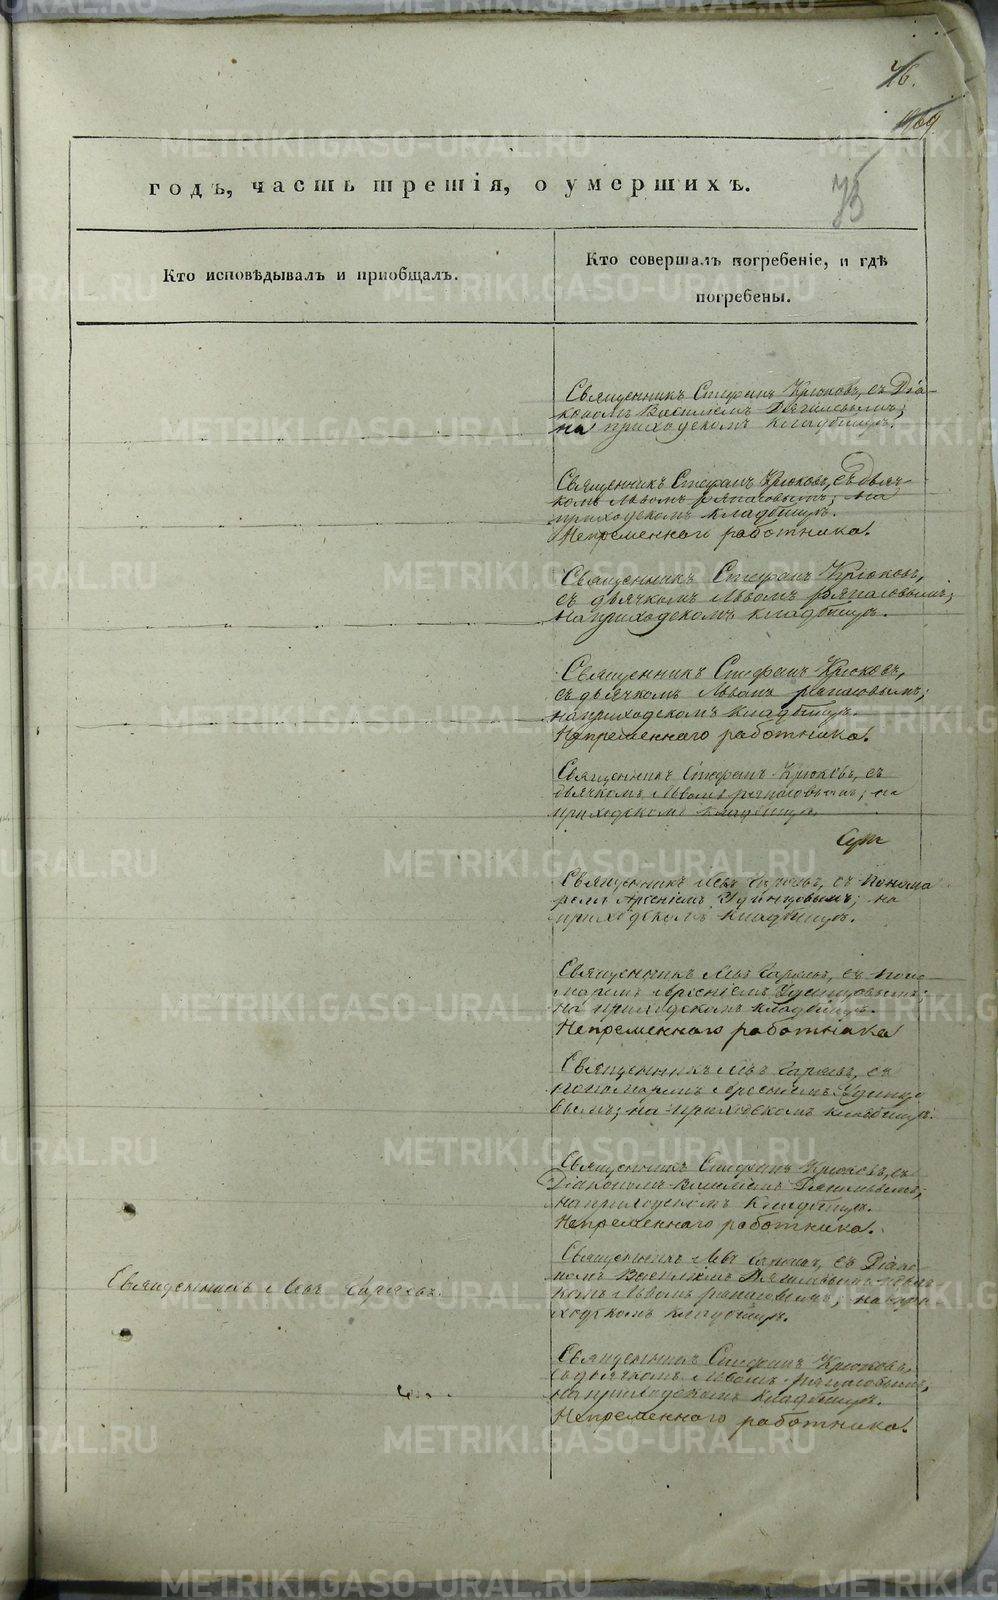 76.
169
75
годъ, часть третія, о умершихъ.
Кто исповѣдывалъ и пріобщалъ.
Кто совершалъ погребеніе, и гдѣ
погребены.
Священникъ Стефанъ Крюковъ, съ Діа-
кономъ Василіемъ
на приходскомъ кладбищѣ.
Священникъ Стефанъ Крюковъ, съ дьяч-
комъ Львомъ Ряпасовымъ; на
приходскомъ кладбищѣ.
Непременнаго работника.
Священникъ Стефанъ Крюковъ,
съ дьячкомъ Львомъ Ряпасовымъ;
на приходскомъ кладбищѣ.
Священникъ Стефанъ Крюковъ,
съ дьячкомъ Львомъ Ряпасовымъ;
на приходскомъ кладбищѣ.
Непременнаго работника.
Священникъ Стефанъ Крюковъ, съ
дьячкомъ Львомъ Ряпасовымъ; на
приходскомъ кладбищѣ.
Священникъ Левъ съ Понома
ремъ Арсеніемъ Удинцовымъ; на
приходскомъ кладбищѣ.
Священникъ Левъ съ поно-
маремъ Арсеніемъ Удинцовымъ;
на приходскомъ кладбищѣ.
Непременнаго работника
Священникъ Левъ съ
пономаремъ Арсеніемъ Удинцо
вымъ; на приходскомъ кладбищѣ.
Священникъ Стефанъ Крюковъ, съ
Діакономъ Василіемъ
на приходскомъ кладбищѣ.
Непременнаго работника.
Священникъ Левъ съ Діако-
номъ Василіемъ
комъ Львомъ Ряпасовымъ; на при
ходскомъ кладбищѣ.
Священникъ Левъ
Священникъ Стефанъ Крюковъ,
съ дьячкомъ Львомъ Ряпасовымъ,
на приходскомъ кладбищѣ.
Непременнаго работника.
METRIKI.GASO-URAL.RU